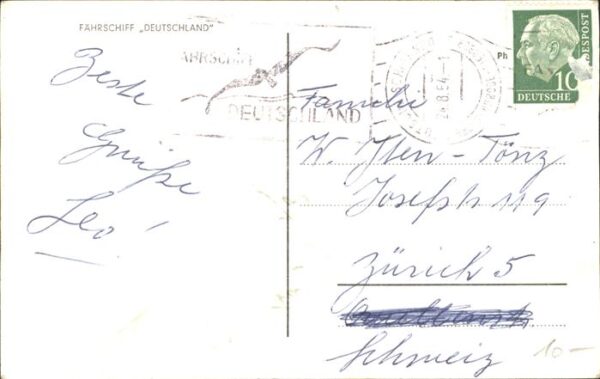 FÄHRSCHIFF „DEUTSCHLAND"
Beste
Grüße
Leo!
FÄHRSCHIFF
DEUTSCHLAND
24.8.64
Ph
10
DEUTSCHE
BUNDESPOST
Familie
W. Iten-Tönz
Josefstr 119
Zürich 5
Schweiz
10-